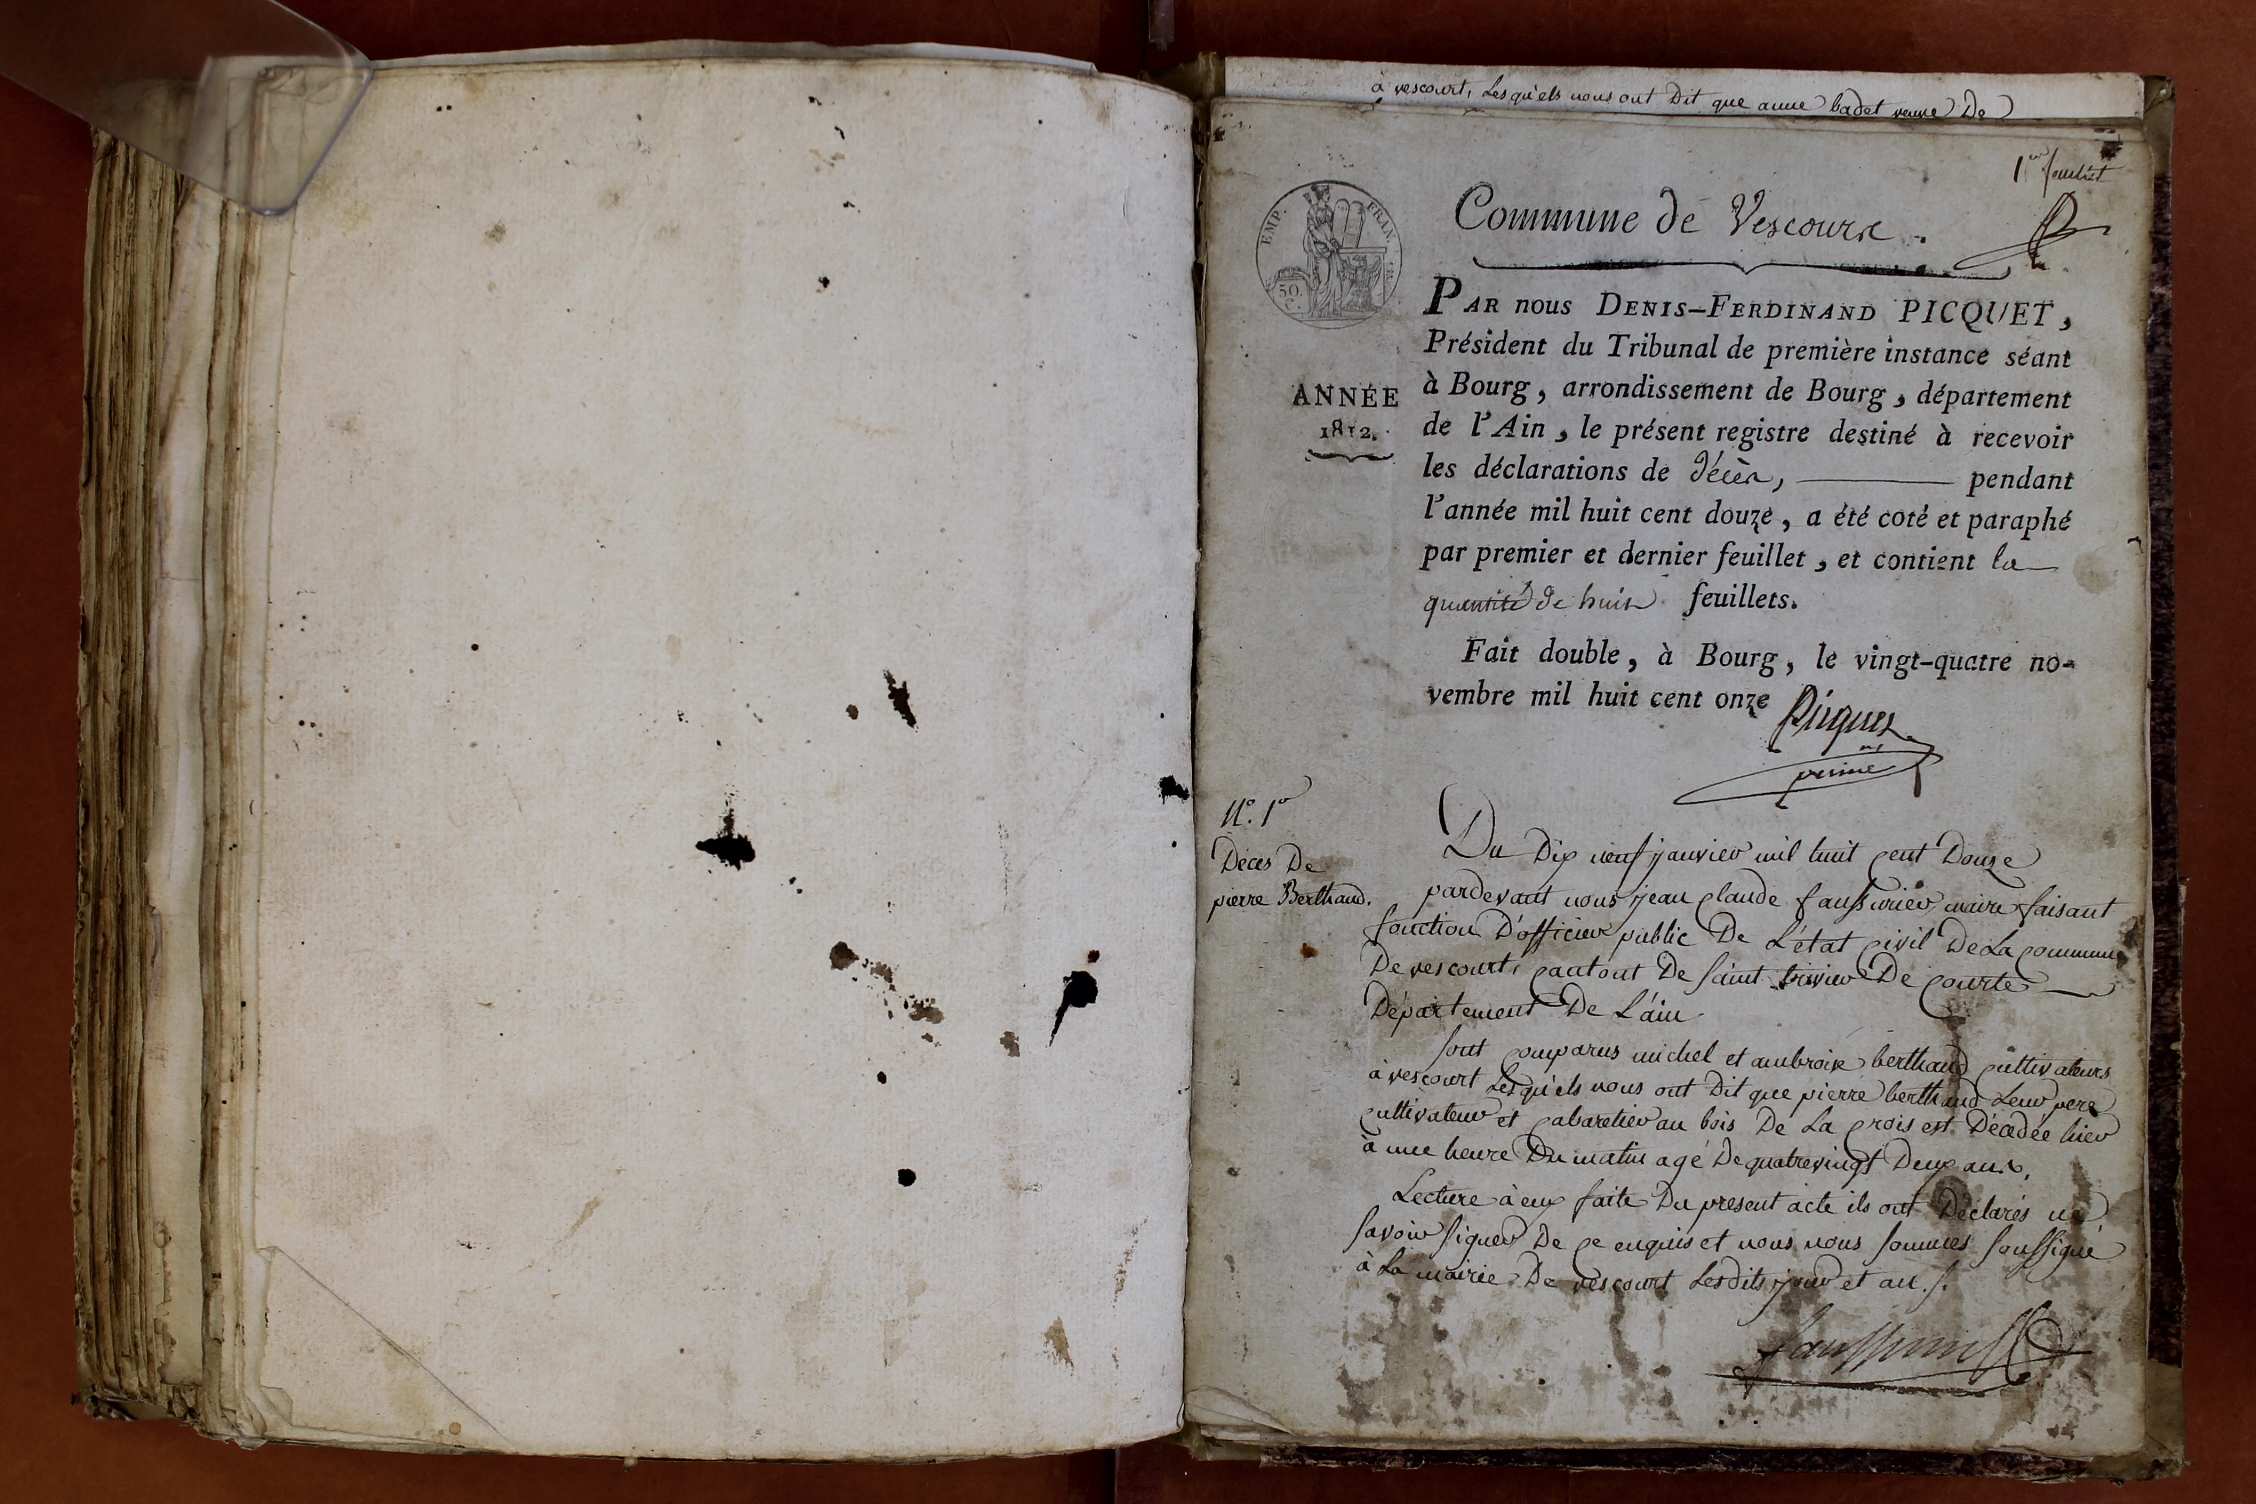 à vescourt, Lesqu'els nous ont Dit que anne badet veuve De
1er feuillet
Commune de Vescours.
EMP. FRAN.
50. C.
PAR nous DENIS-FERDINAND PICQUET,
Président du Tribunal de première instance séant
à Bourg, arrondissement de Bourg, département
de l'Ain, le présent registre destiné à recevoir
les déclarations de décès, pendant
l'année mil huit cent douze, a été coté et paraphé
par premier et dernier feuillet, et contient la
quantité de huit feuillets.
ANNÉE
1812.
Fait double, à Bourg, le vingt-quatre no-
vembre mil huit cent onze
Picquet
N°. 1er
Décès De
pierre Berthaud.
Du Dix neuf janvier mil huit cent Douze
pardevant nous jean claude maire faisant
fonction D'officier public De L'état civil De La commune
De vescourt, cantont De saint trivier De courte
Département De L'ain
sont comparus michel et ambroise berthaud cultivateurs
à vescourt Lesqu'els nous ont Dit que pierre berthaud Leur pere
cultivateur et cabaretier au bois De La crois est Décedée hier
à une heure Du matin agé De quatrevingt Deux ans.
Lecture à eux faite Du present acte ils ont Déclarés ne
savoir signer De ce enquis et nous nous sommes soussigné
à La mairie De vescourt Lesdits jour et an.